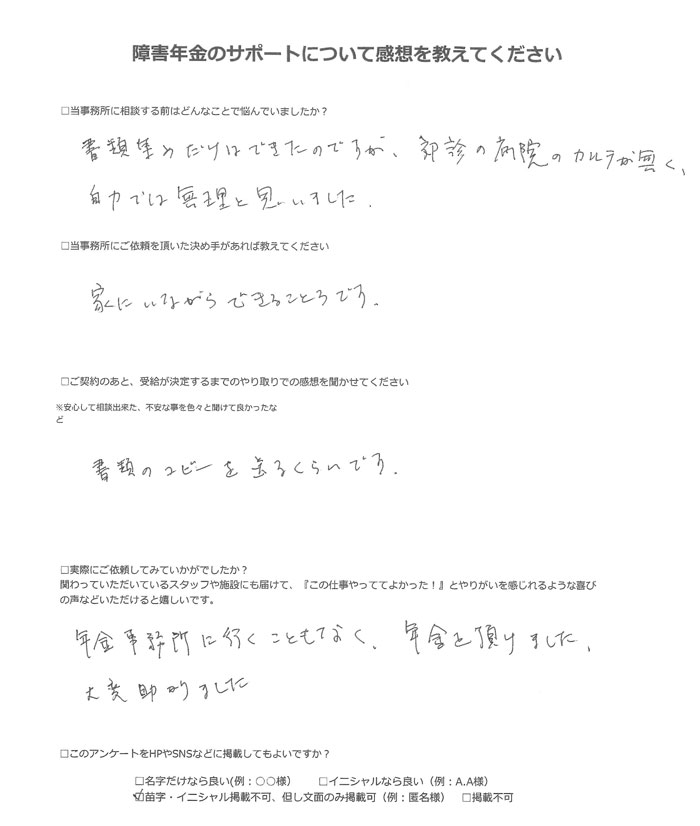 障害年金のサポートについて感想を教えてください
□当事務所に相談する前はどんなことで悩んでいましたか？
書類集めだけはできたのですが、初診の病院のカルテが無く、
自力では無理と思いました。
□当事務所にご依頼を頂いた決め手があれば教えてください
家にいながらできるところです。
□ご契約のあと、受給が決定するまでのやり取りでの感想を聞かせてください
※安心して相談出来た、不安な事を色々と聞けて良かったな
ど
書類のコピーを送るくらいです。
□実際にご依頼してみていかがでしたか？
関わっていただいているスタッフや施設にも届けて、『この仕事やっててよかった！』とやりがいを感じれるような喜び
の声などいただけると嬉しいです。
年金事務所に行くこともなく、年金を頂けました、
大変助かりました
□このアンケートをHPやSNSなどに掲載してもよいですか？
□名字だけなら良い(例：○○様）　□イニシャルなら良い（例：A.A様）
☑苗字・イニシャル掲載不可、但し文面のみ掲載可（例：匿名様）　□掲載不可